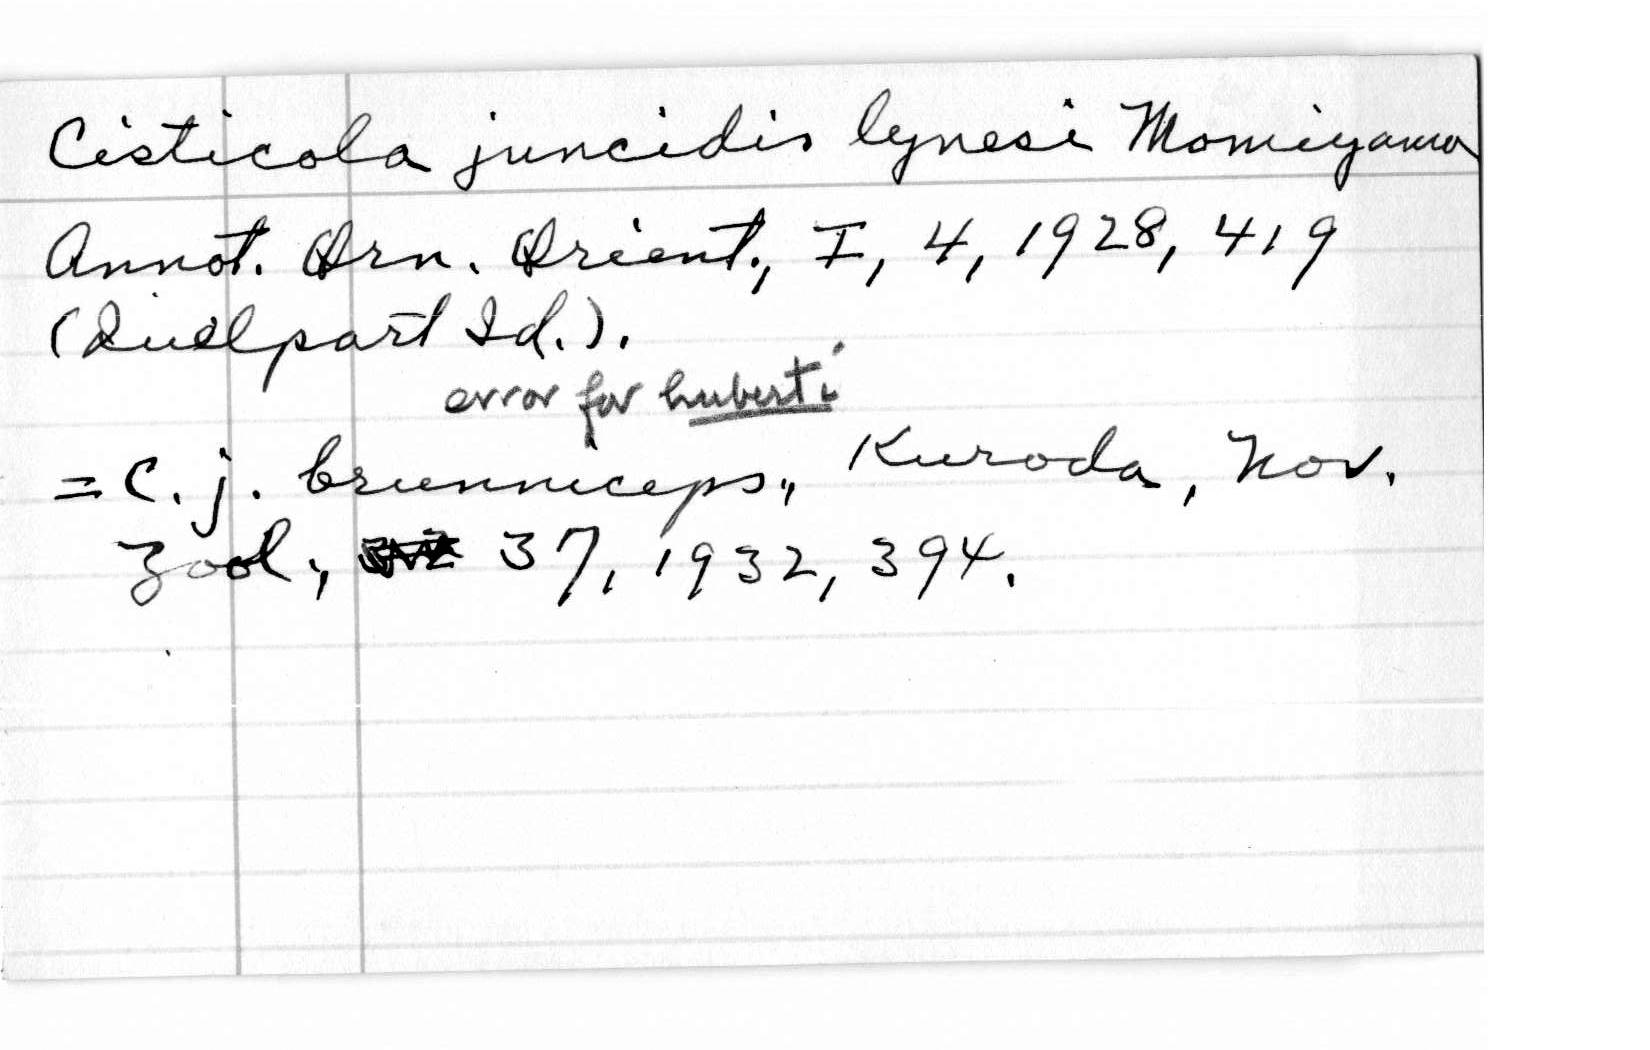 Cisticola juncidis lynesi Momiyama
Annot. Orn. Orient., I, 4, 1928, 419
(Quelpart Id.).
error for huberti
= C. j. brunniceps, Kuroda, Nov.
Zool., 37, 1932, 394.